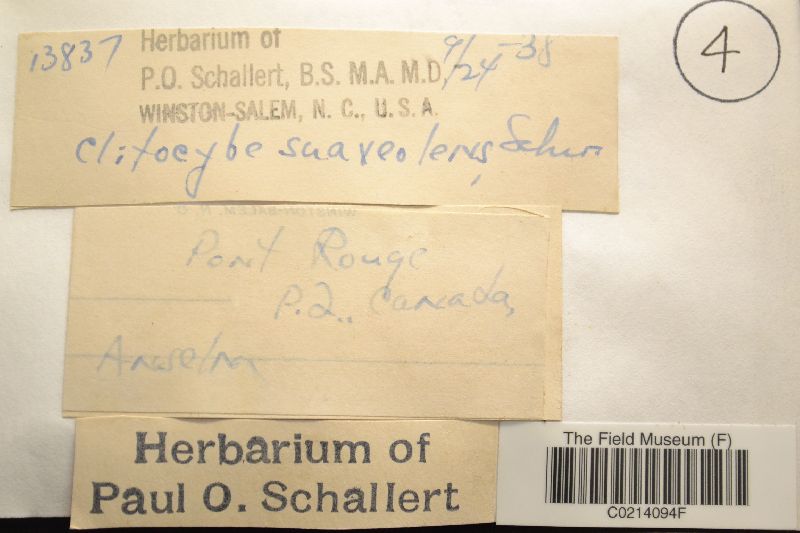 13837 Herbarium of 9/24-38
P.O. Schallert, B.S. M.A. M.D.
WINSTON-SALEM, N. C., U. S. A.
Clitocybe suaveolens, Schum
4
WINSTON-SALEM, N. C.
Pont Rouge
P.Q., Canada,
Anselm
Herbarium of
Paul O. Schallert
The Field Museum (F)
C0214094F